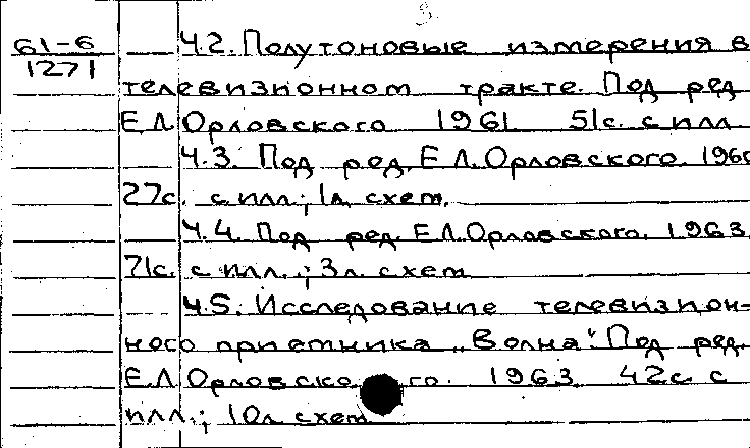 3.
61-6
1271
Ч.2. Полутоновые измерения в
телевизионном тракте. Под ред
Е Л Орловского 1961 51с. с илл
Ч.3. Под ред. Е Л. Орловского. 1960
27с. с илл.; 1л. схем.
Ч.4. Под ред. Е.Л. Орловского. 1963.
71с. с илл.; 3л. схем
Ч.5. Исследование телевизион-
ного приемника „Волна". Под ред.
Е.Л Орловско го. 1963. 42с. с
илл.; 10л схем